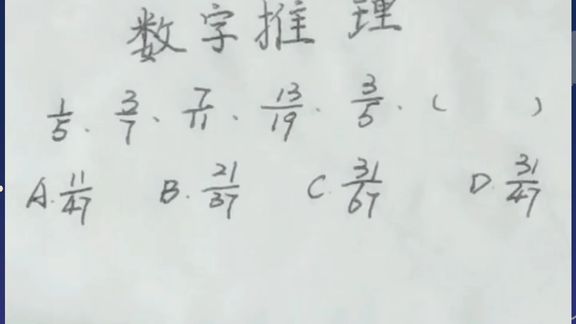 数字推理
1/5、3/7、7/11、13/19、3/5、( )
A. 11/47 B. 21/37 C. 31/67 D. 31/47